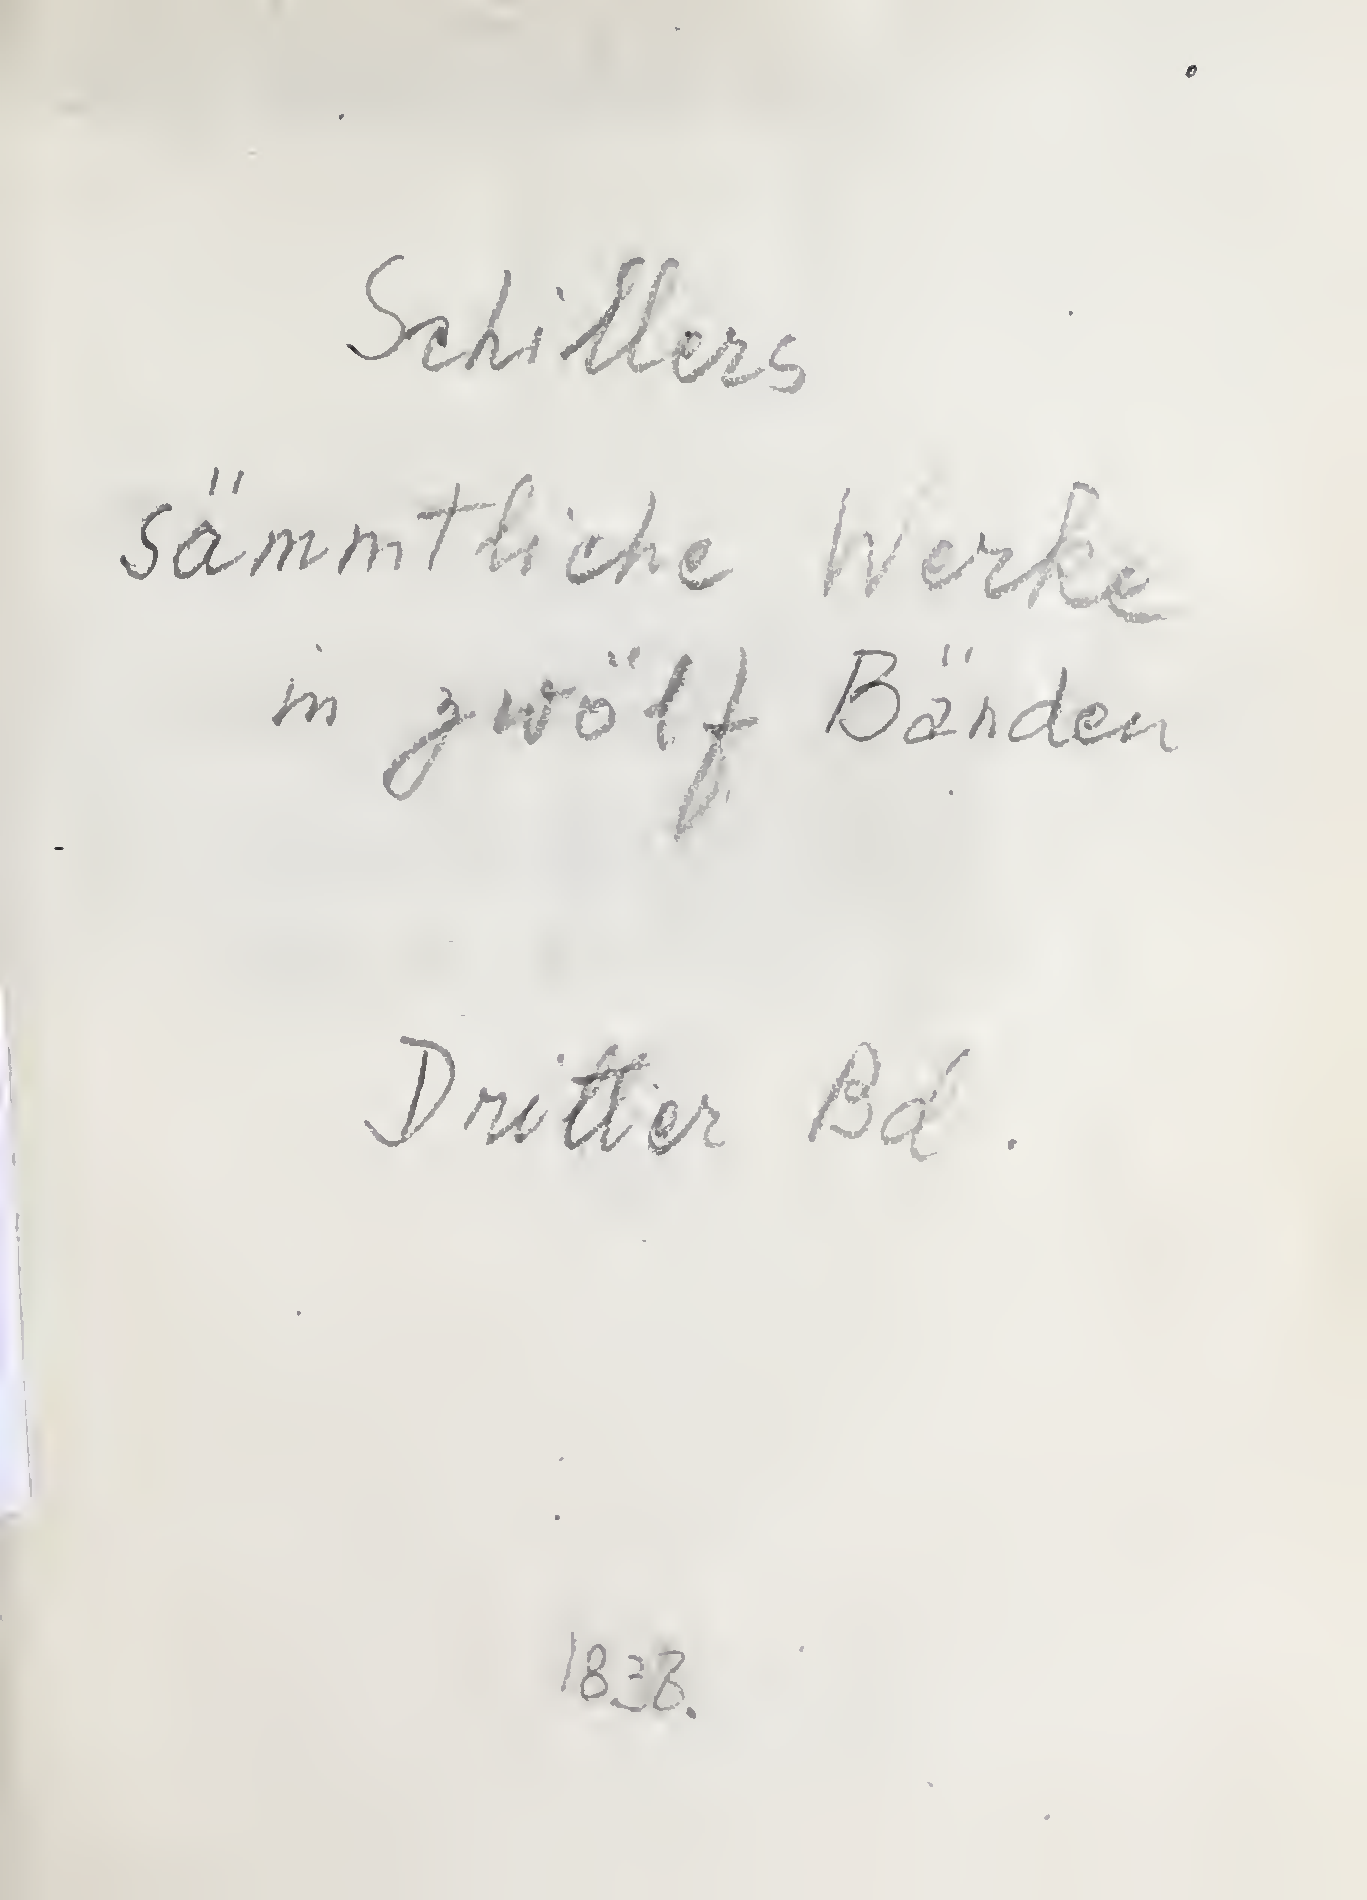 Schillers
sämmtliche Werke
in zwölf Bänden
Dritter Bd.
1838.